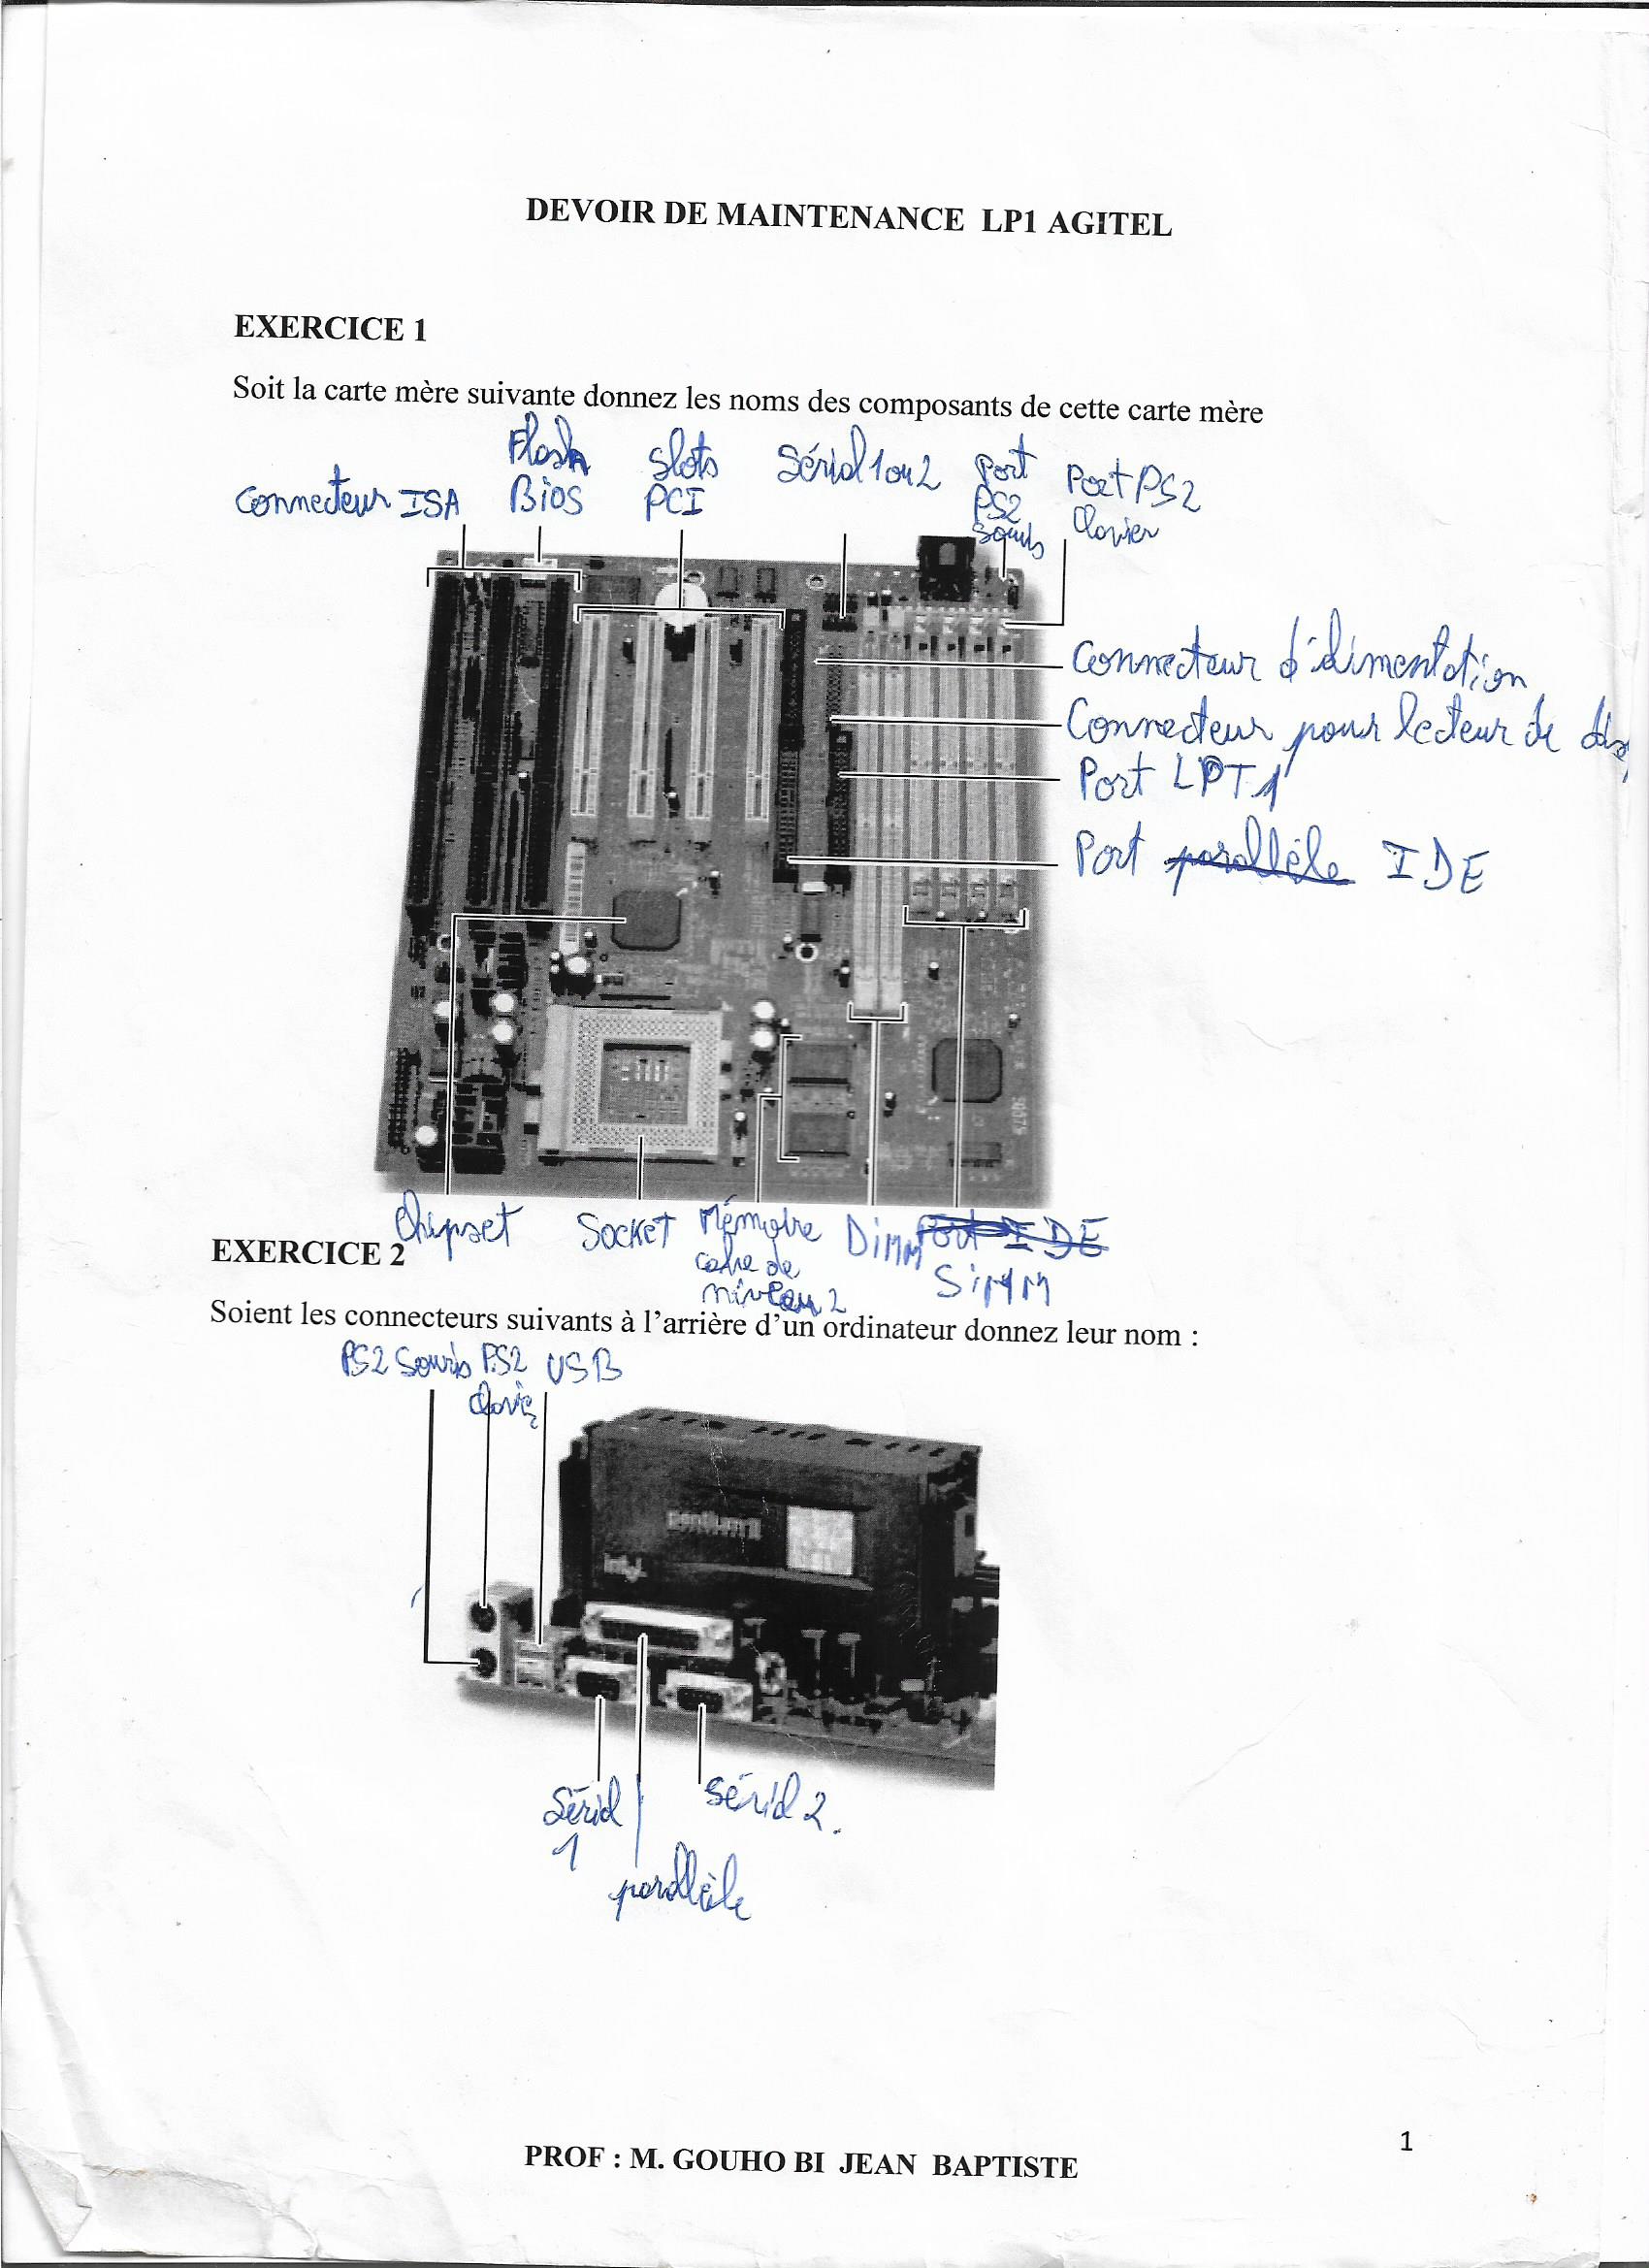 DEVOIR DE MAINTENANCE LP1 AGITEL
EXERCICE 1
Soit la carte mère suivante donnez les noms des composants de cette carte mère
Connecteur ISA
Flash
Bios
Slots
PCI
Sérial 1 ou 2
Port
PS2
Souris
Port PS2
Clavier
Connecteur d'alimentation
Connecteur pour lecteur de
Port LPT1
Port parallèle IDE
Chipset
Socket
Mémoire
cache de
niveau 2
Dimm
Port IDE
Simm
EXERCICE 2
Soient les connecteurs suivants à l'arrière d'un ordinateur donnez leur nom :
PS2 Souris
PS2
USB
pentium II
Sérial
1
parallèle
Sérial 2.
1
PROF : M. GOUHO BI JEAN BAPTISTE